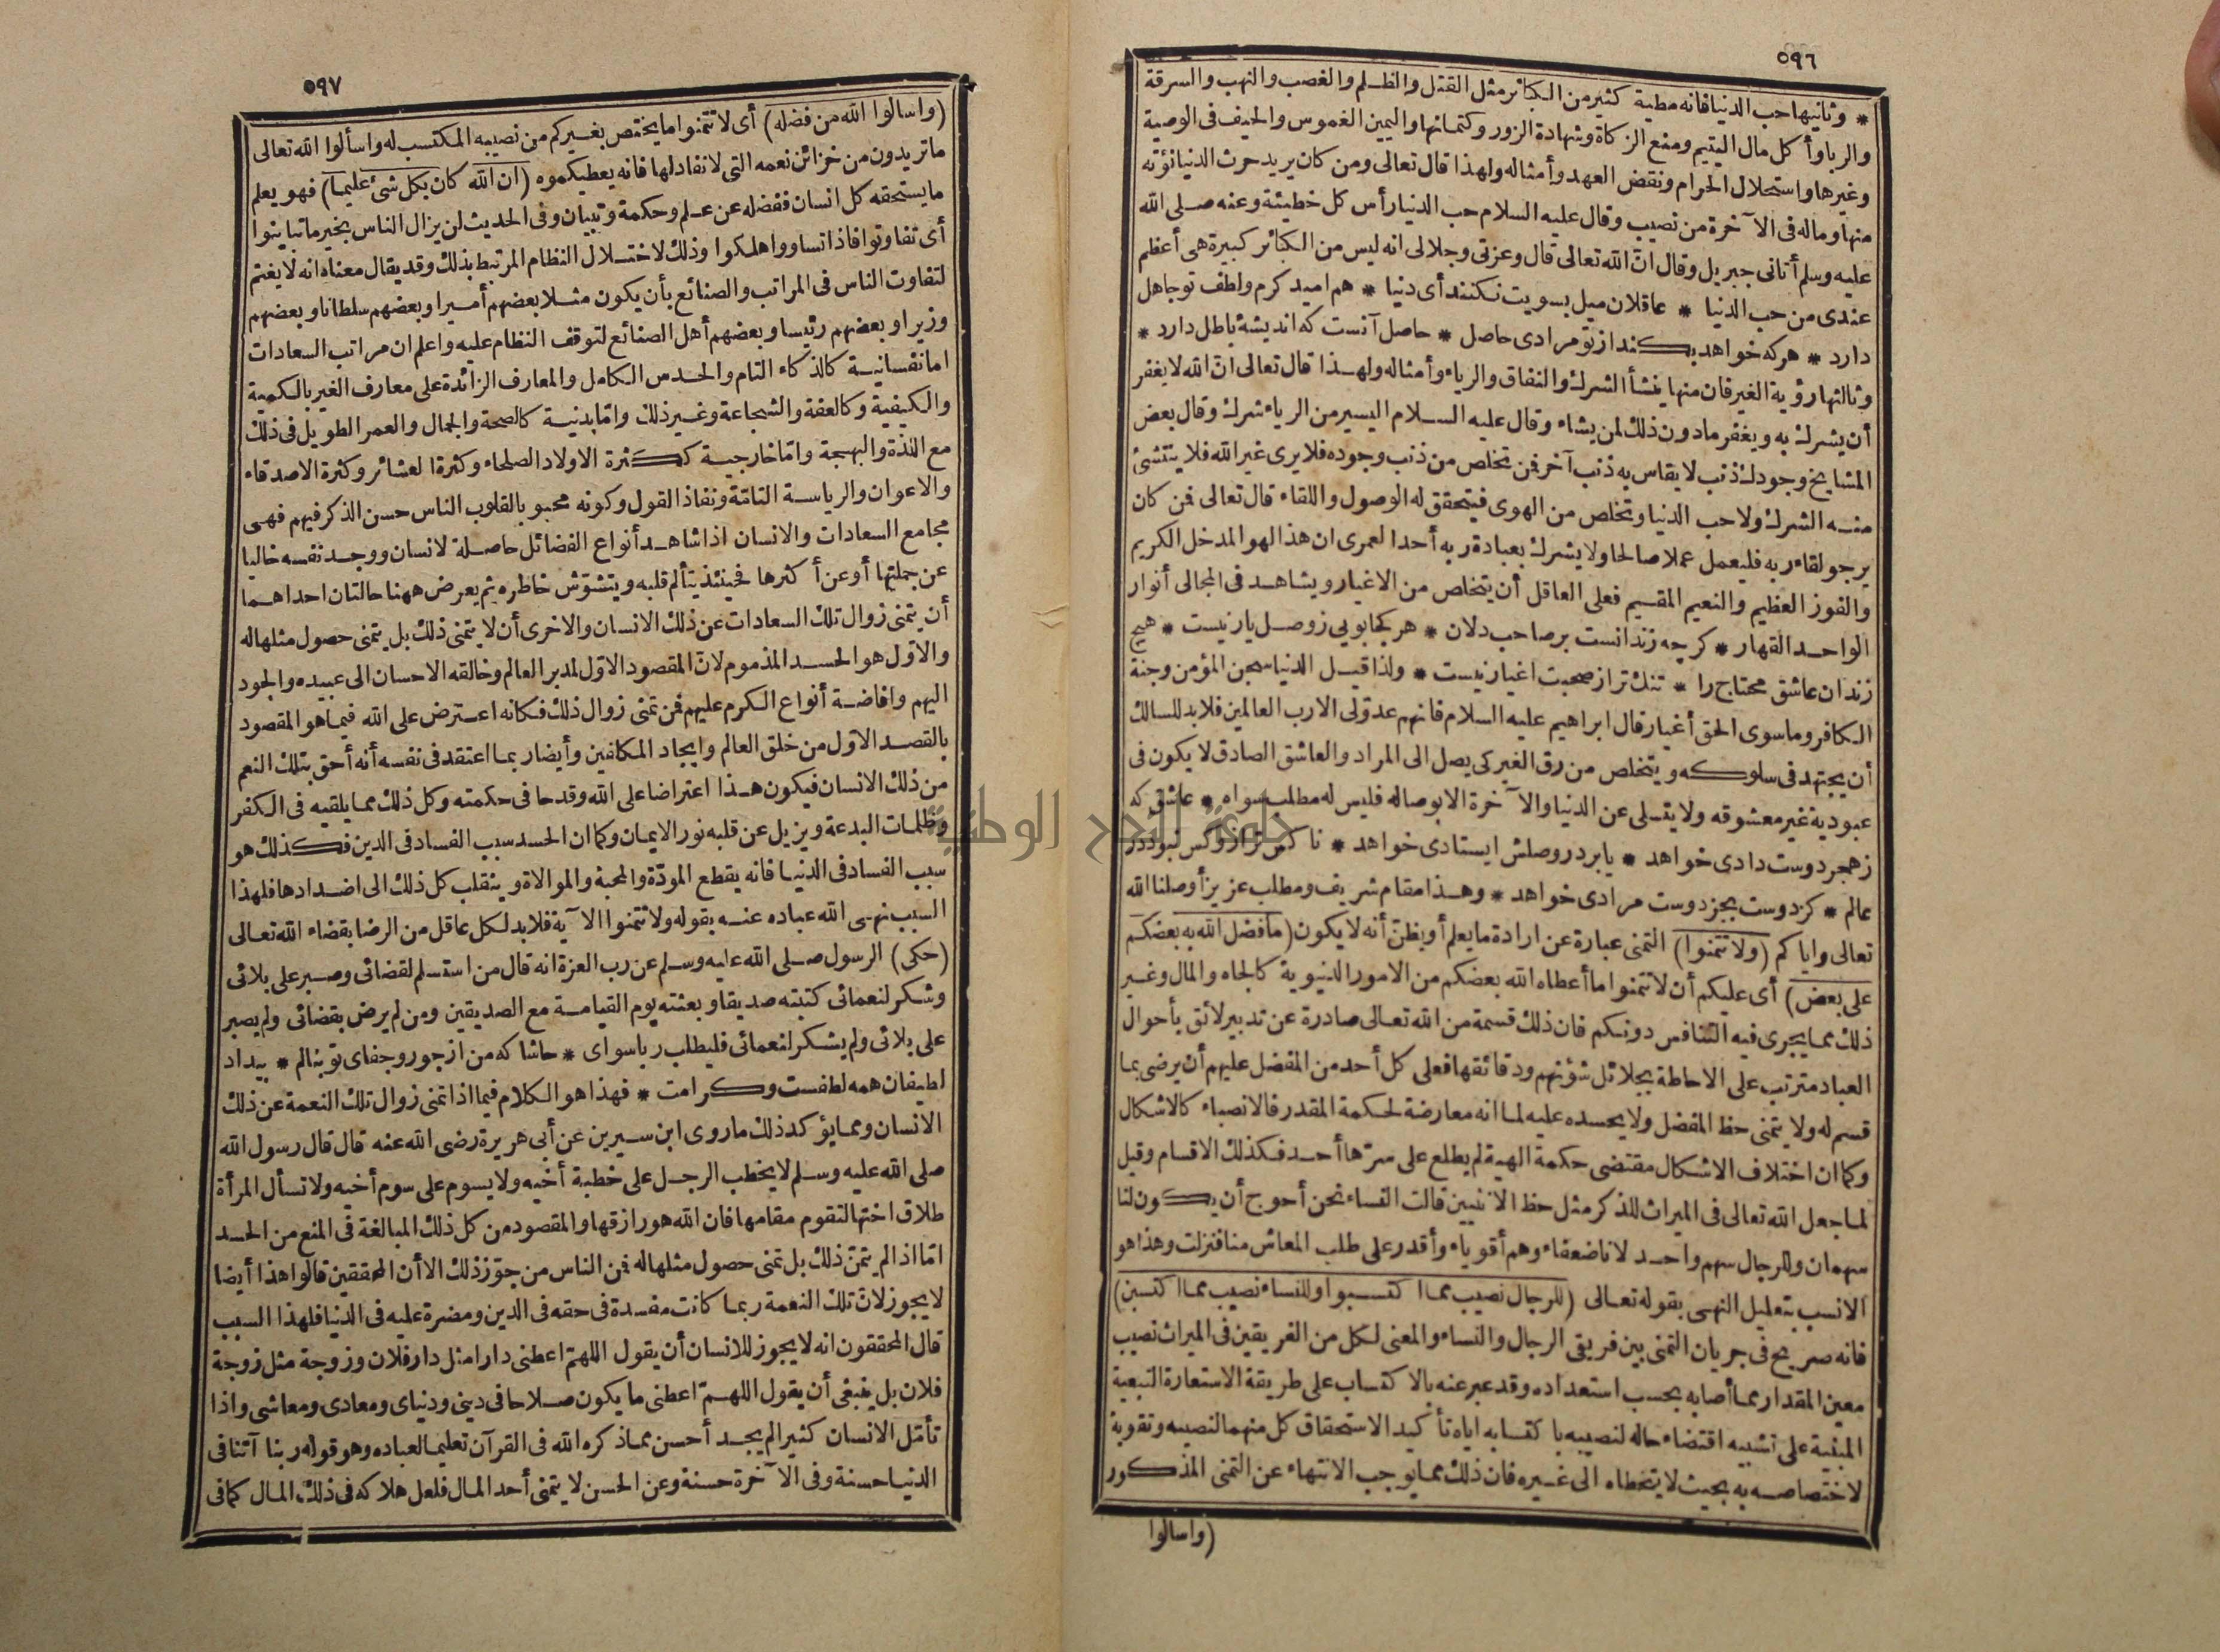 ٥٩٦
* وثانيها حب الدنيا فانه مطية كثير من الكبائر مثل القتل والظلم والغصب والنهب والسرقة
والربا وأكل مال اليتيم ومنع الزكاة وشهادة الزور وكتمانها واليمين الغموس والحيف فى الوصية
وغيرها واستحلال الحرام ونقض العهد وأمثاله ولهذا قال تعالى ومن كان يريد حرث الدنيا نؤته
منها وماله فى الآخرة من نصيب وقال عليه السلام حب الدنيا رأس كل خطيئة وعنه صلى الله
عليه وسلم أتانى جبريل وقال انّ الله تعالى قال وعزتى وجلالى انه ليس من الكبائر كبيرة هى أعظم
عندى من حب الدنيا * عاقلان ميل بسويت نكنند أى دنيا * هم اميد كرم ولطف تو جاهل
دارد * هركه خواهد بكند از تو مرادى حاصل * حاصل آنست كه انديشهٔ باطل دارد *
وثالثها رؤية الغير فان منها ينشأ الشرك والنفاق والرياء وأمثاله ولهذا قال تعالى انّ الله لا يغفر
أن يشرك به ويغفر مادون ذلك لمن يشاء وقال عليه السلام اليسير من الرياء شرك وقال بعض
المشايخ وجودك ذنب لا يقاس به ذنب آخر فمن تخلص من ذنب وجوده فلا يرى غير الله فلا ينتشئ
منه الشرك ولا حب الدنيا وتخلص من الهوى فيتحقق له الوصول واللقاء قال تعالى فمن كان
يرجو لقاء ربه فليعمل عملا صالحا ولا يشرك بعبادة ربه أحدا لعمرى ان هذا لهو المدخل الكريم
والفوز العظيم والنعيم المقيم فعلى العاقل أن يتخلص من الاغيار ويشاهد فى المجالى أنوار
الواحد القهار * كرچه زندانست بر صاحب دلان * هر كجا بويى ز وصل يار نيست * هيچ
زندان عاشق محتاج را * تنك تر از صحبت اغيار نيست * ولذا قيل الدنيا سجن المؤمن وجنة
الكافر وما سوى الحق أغيار قال ابراهيم عليه السلام فانهم عدوّلى الا رب العالمين فلابد للسالك
أن يجتهد فى سلوكه ويتخلص من رق الغير كى يصل الى المراد والعاشق الصادق لا يكون فى
عبودية غير معشوقه ولا يتسلى عن الدنيا والآخرة الا بوصاله فليس له مطلب سواه * عاشق كه
ز هجر دوست دادى خواهد * يا بر در وصلش ايستادى خواهد * ناكس تر ازو كس نبود در
عالم * كز دوست بجز دوست مرادى خواهد * وهذا مقام شريف ومطلب عزيز أوصلنا الله
تعالى واياكم (ولا تتمنوا) التمنى عبارة عن ارادة ما يعلم أو يظنّ أنه لا يكون (ما فضل الله به بعضكم
على بعض) أى عليكم أن لا تتمنوا ما أعطاه الله بعضكم من الامور الدنيوية كالجاه والمال وغير
ذلك مما يجرى فيه التنافس دونكم فان ذلك قسمة من الله تعالى صادرة عن تدبير لائق بأحوال
العباد مترتب على الاحاطة بجلائل شؤنهم ودقائقها فعلى كل أحد من المفضل عليهم أن يرضى بما
قسم له ولا يتمنى حظ المفضل ولا يحسده عليه لما انه معارضة لحكمة المقدر فالانصباء كالاشكال
وكما ان اختلاف الاشكال مقتضى حكمة الهية لم يطلع على سرّها أحد فكذلك الاقسام وقيل
لما جعل الله تعالى فى الميراث للذكر مثل حظ الانثيين قالت النساء نحن أحوج أن يكون لنا
سهمان وللرجال سهم واحد لانا ضعفاء وهم أقوياء وأقدر على طلب المعاش منا فنزلت وهذا هو
الانسب بتعليل النهى بقوله تعالى (للرجال نصيب مما اكتسبوا وللنساء نصيب مما اكتسبن)
فانه صريح فى جريان التمنى بين فريقى الرجال والنساء والمعنى لكل من الفريقين فى الميراث نصيب
معين المقدار مما أصابه بحسب استعداده وقد عبر عنه بالاكتساب على طريقة الاستعارة التبعية
المبنية على تشبيه اقتضاء حاله لنصيبه باكتسابه اياه تأكيد الاستحقاق كل منهما لنصيبه وتقوية
لاختصاصه به بحيث لا يتخطاه الى غيره فان ذلك مما يوجب الانتهاء عن التمنى المذكور
(واسالوا
٥٩٧
(واسالوا الله من فضله) أى لا تتمنوا ما يختص بغيركم من نصيبه المكتسب له واسألوا الله تعالى
ما تريدون من خزائن نعمه التى لا نفاد لها فانه يعطيكموه (ان الله كان بكل شئ عليما) فهو يعلم
ما يستحقه كل انسان فففضله عن علم وحكمة وتبيان وفى الحديث لن يزال الناس بخير ما تباينوا
أى تفاوتوا فاذا تساووا هلكوا وذلك لاختلال النظام المرتبط بذلك وقد يقال معناه انه لا يغتم
لتفاوت الناس فى المراتب والصنائع بأن يكون مثلا بعضهم أميرا وبعضهم سلطانا وبعضهم
وزيرا وبعضهم رئيسا وبعضهم أهل الصنائع لتوقف النظام عليه واعلم ان مراتب السعادات
اما نفسانية كالذكاء التام والحدس الكامل والمعارف الزائدة على معارف الغير بالكمية
والكيفية وكالعفة والشجاعة وغير ذلك وامّا بدنية كالصحة والجمال والعمر الطويل فى ذلك
مع اللذة والبهجة وامّا خارجية ككثرة الاولاد الصلحاء وكثرة العشائر وكثرة الاصدقاء
والاعوان والرياسة التامّة ونفاذ القول وكونه محبوبا لقلوب الناس حسن الذكر فيهم فهى
مجامع السعادات والانسان اذا شاهد أنواع الفضائل حاصلة لانسان ووجد نفسه خاليا
عن جملتها أو عن أكثرها فحينئذ يتألم قلبه ويتشوّش خاطره ثم يعرض ههنا حالتان احداهما
أن يتمنى زوال تلك السعادات عن ذلك الانسان والاخرى أن لا يتمنى ذلك بل يتمنى حصول مثلها له
والاوّل هو الحسد المذموم لانّ المقصود الاوّل لمدبر العالم وخالقه الاحسان الى عبيده والجود
اليهم وافاضة أنواع الكرم عليهم فمن تمنى زوال ذلك فكانه اعترض على الله فيما هو المقصود
بالقصد الاوّل من خلق العالم وايجاد المكلفين وأيضا ربما اعتقد فى نفسه أنه أحق بتلك النعم
من ذلك الانسان فيكون هذا اعتراضا على الله وقدحا فى حكمته وكل ذلك مما يلقيه فى الكفر
وظلمات البدعة ويزيل عن قلبه نور الايمان وكما ان الحسد سبب الفساد فى الدين فكذلك هو
سبب الفساد فى الدنيا فانه يقطع المودّة والمحبة والموالاة وينقلب كل ذلك الى اضدادها فلهذا
السبب نهى الله عباده عنه بقوله ولا تتمنوا الآية فلابد لكل عاقل من الرضا بقضاء الله تعالى
(حكى) الرسول صلى الله عليه وسلم عن رب العزة انه قال من استسلم لقضائى وصبر على بلائى
وشكر لنعمائى كتبته صديقا وبعثته يوم القيامة مع الصديقين ومن لم يرض بقضائى ولم يصبر
على بلائى ولم يشكر لنعمائى فليطلب ربا سواى * حاشا كه من از جور وجفاى تو بنالم * بيداد
لطيفان همه لطفست وكرامت * فهذا هو الكلام فيما اذا تمنى زوال تلك النعمة عن ذلك
الانسان ومما يؤكد ذلك ما روى ابن سيرين عن أبى هريرة رضى الله عنه قال قال رسول الله
صلى الله عليه وسلم لا يخطب الرجل على خطبة أخيه ولا يسوم على سوم أخيه ولا تسأل المرأة
طلاق اختها لتقوم مقامها فان الله هو رازقها والمقصود من كل ذلك المبالغة فى المنع من الحسد
امّا اذا لم يتمنّ ذلك بل تمنى حصول مثلها له فمن الناس من جوّز ذلك الا أن المحققين قالوا هذا أيضا
لا يجوز لانّ تلك النعمة ربما كانت مفسدة فى حقه فى الدين ومضرة عليه فى الدنيا فلهذا السبب
قال المحققون انه لا يجوز للانسان أن يقول اللهمّ اعطنى دارا مثل دار فلان وزوجة مثل زوجة
فلان بل ينبغى أن يقول اللهمّ اعطنى ما يكون صلاحا فى دينى ودنياى ومعادى ومعاشى واذا
تأمّل الانسان كثيرا لم يجد أحسن مما ذكره الله فى القرآن تعليما لعباده وهو قوله ربنا آتنا فى
الدنيا حسنة وفى الآخرة حسنة وعن الحسن لا يتمنى أحد المال فلعل هلاكه فى ذلك المال كما فى